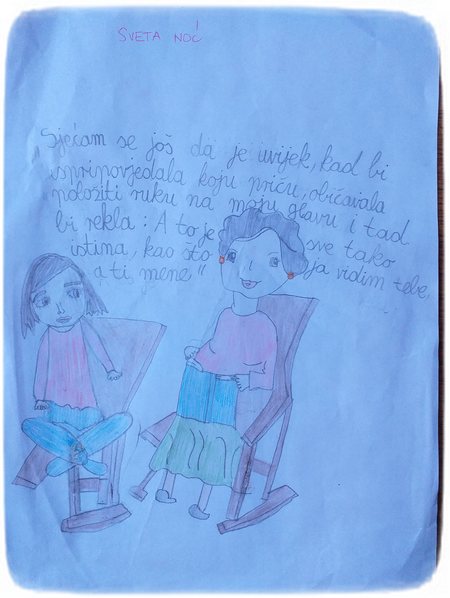 SVETA NOĆ
„Sjećam se još da je uvijek, kad bi
ispripovjedala koju priču, običavala
položiti ruku na moju glavu i tad
bi rekla: A to je sve tako
istina, kao što ja vidim tebe,
a ti mene“